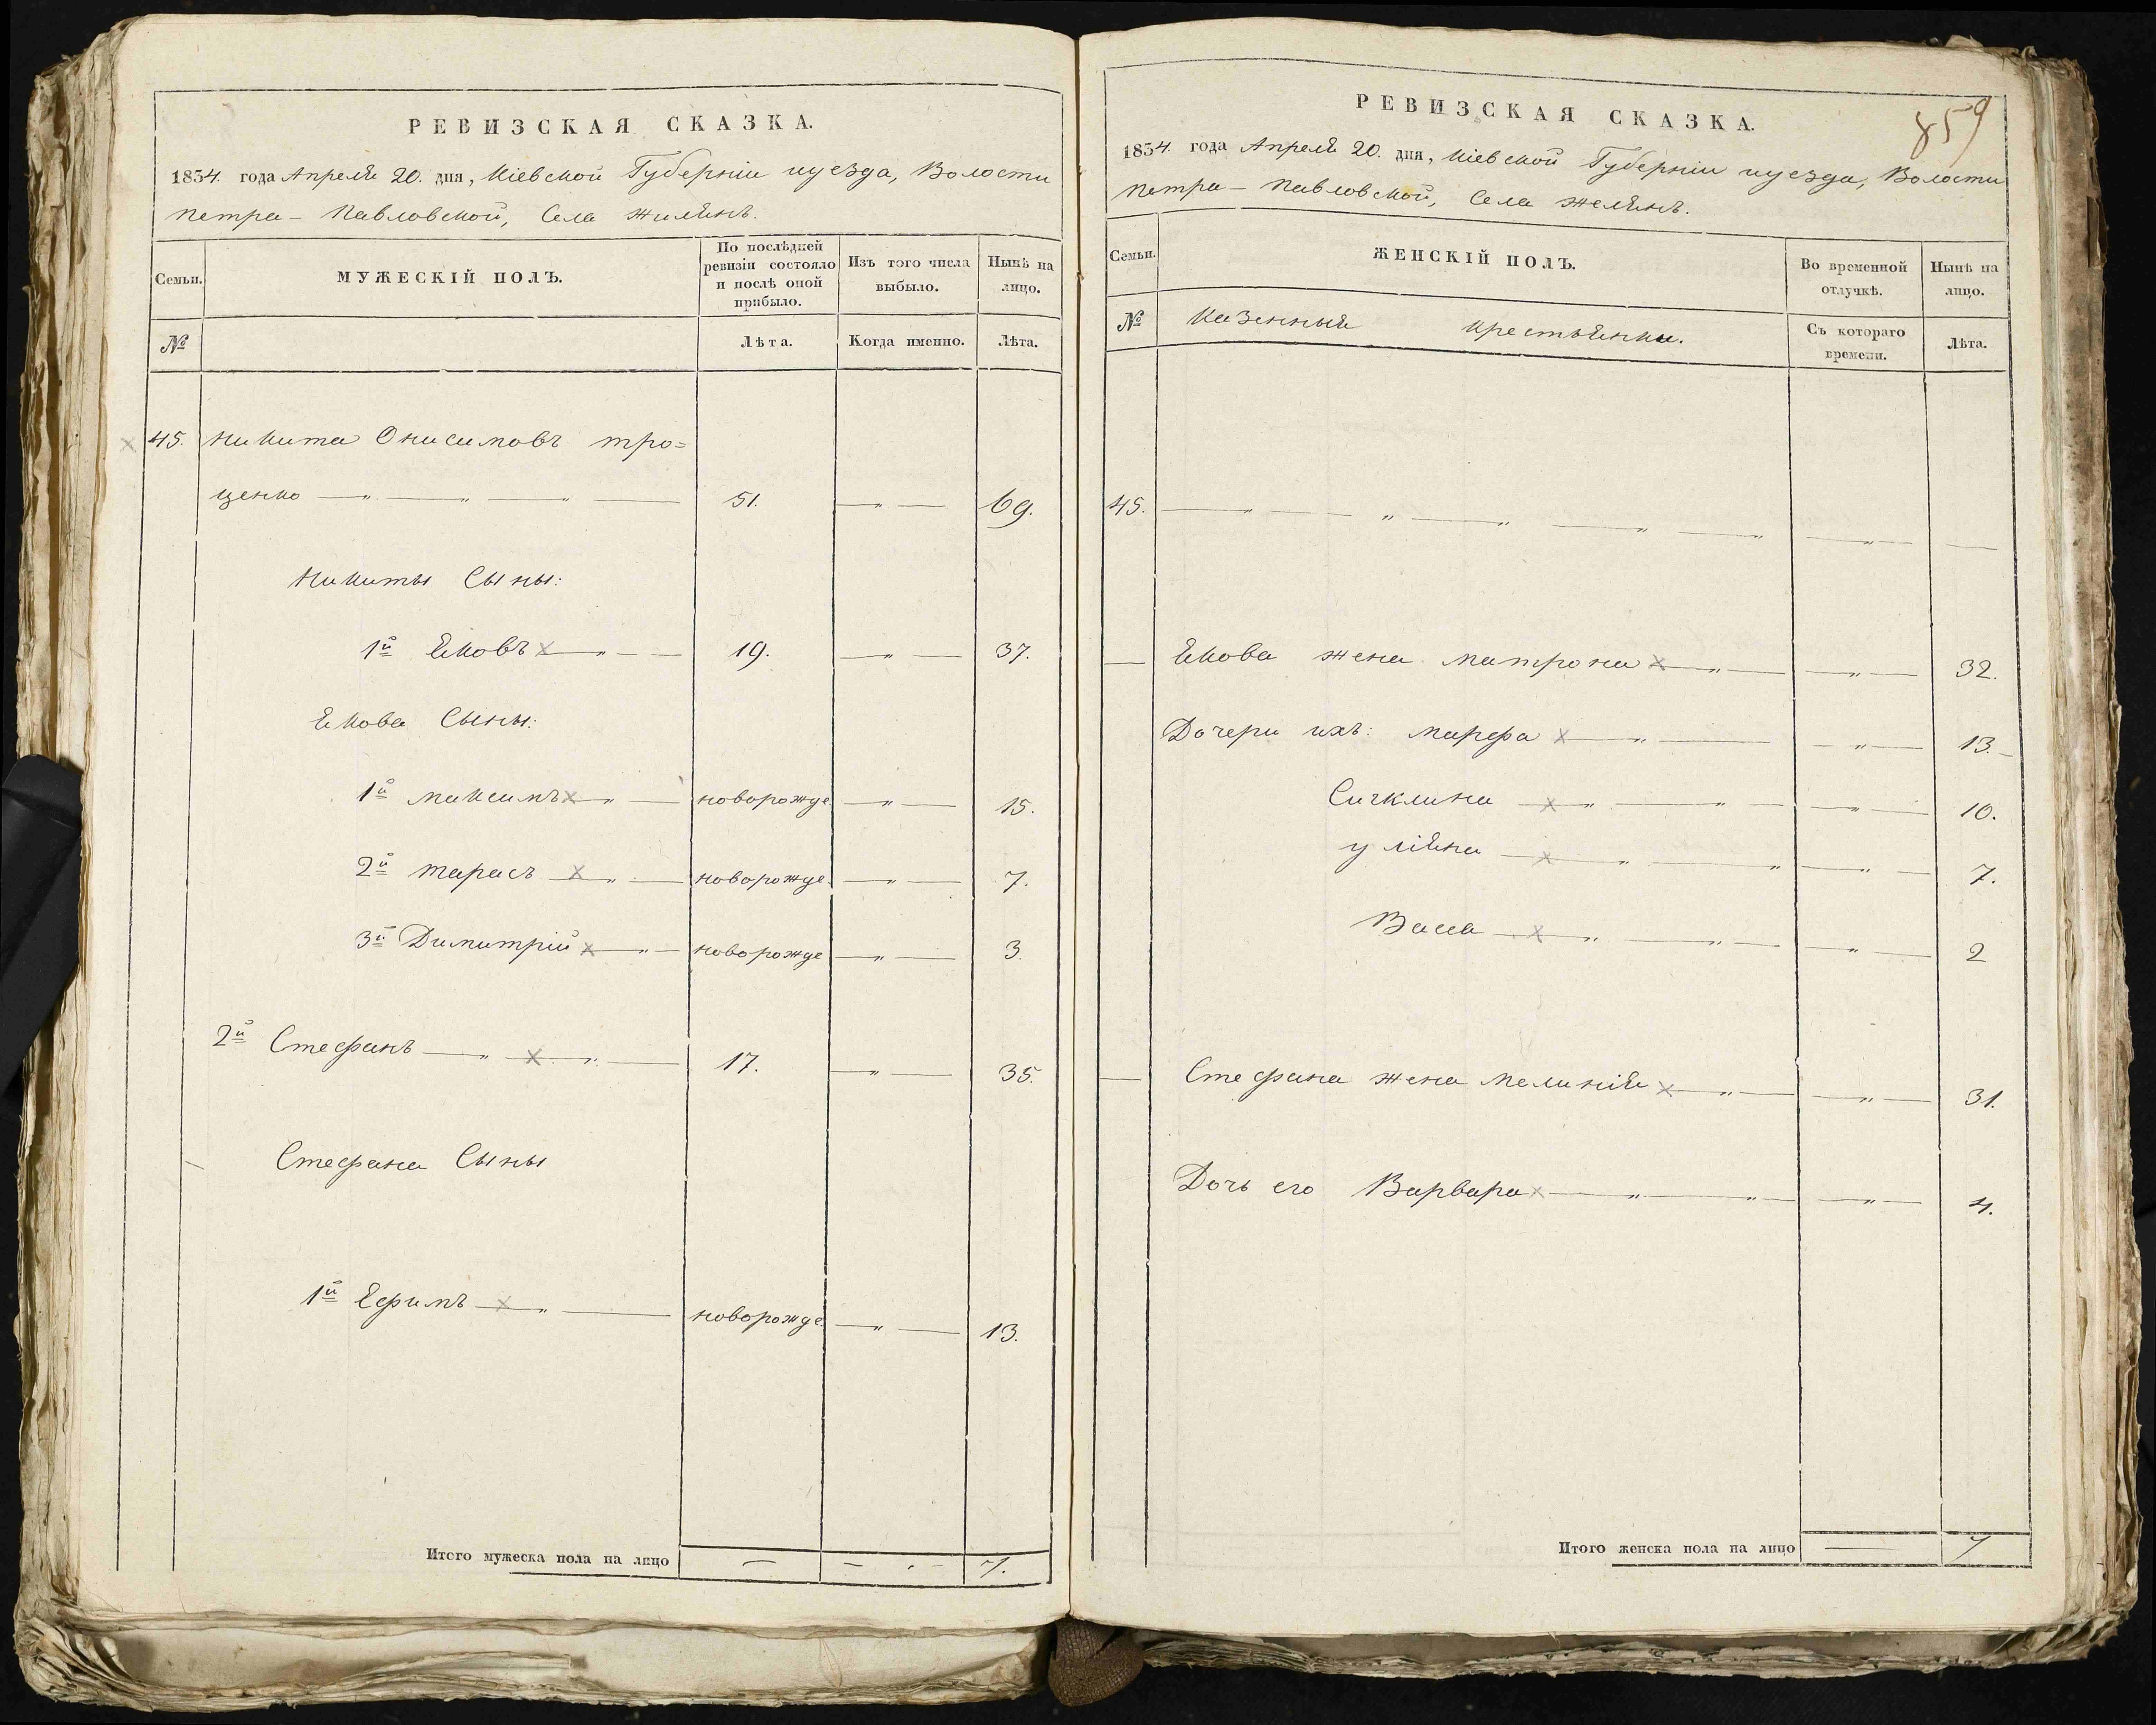 РЕВИЗСКАЯ СКАЗКА.
1834. года Апреля 20. дня, Кіевской Губерніи иуезда, Волости
Петра- Павловской, Села Жилянъ.
Семьи.
МУЖЕСКІЙ ПОЛЪ.
По послѣдней ревизіи состояло и послѣ оной прибыло.
Изъ того числа выбыло.
Нынѣ на лицо.
№
Лѣта.
Когда именно.
Лѣта.
45. Никита Онисимовъ тро=
щенко 51. 69.
Никиты Сыны:
1й Яковъ 19. 37.
Якова Сыны:
1й Максимъ новорожде 15.
2й Тарасъ новорожде 7.
3й Димитрій новорожде 3.
2й Стефанъ 17. 35.
Стефана Сыны
1й Ефимъ новорожде. 13.
Итого мужеска пола на лицо 7.
859
РЕВИЗСКАЯ СКАЗКА.
1834. года Апреля 20. дня, Кіевской Губерніи иуезда, Волости
Петра- Павловской, Села Желянъ.
Семьи.
ЖЕНСКІЙ ПОЛЪ.
Во временной отлучкѣ.
Нынѣ на лицо.
№
Казенныя крестьянки.
Съ котораго времени.
Лѣта.
45.
Якова жена Матрона 32.
Дочери ихъ: Марфа 13.
10.
Уліяна 7.
Васса 2
Стефана жена Меланія 31.
Дочь его Варвара 4.
Итого женска пола на лицо 7